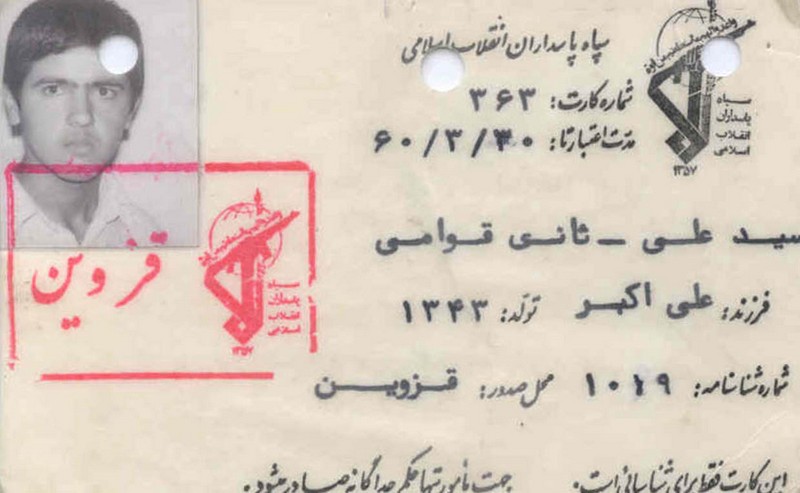 سپاه پاسداران انقلاب اسلامی
شماره کارت: ۳۶۳
مدت اعتبار تا: ۶۰/۳/۳۰
سپاه
پاسداران
انقلاب
اسلامی
۱۳۵۷
سید علی - ثانی قوامی
فرزند: علی اکبر تولد: ۱۳۴۳
شماره شناسنامه: ۱۰۱۹ محل صدور: قزوین
این کارت فقط برای شناسائی است. جهت مأموریتها حکم جداگانه صادر میشود.
قزوین
سپاه
پاسداران
انقلاب
اسلامی
۱۳۵۷